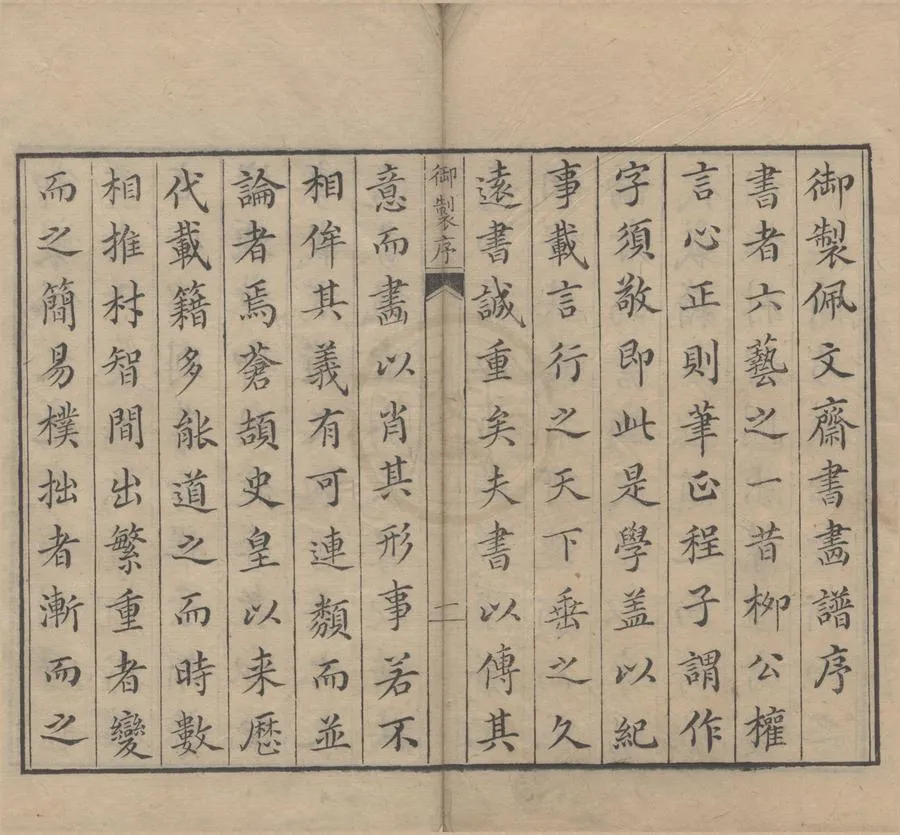 御製佩文齋書畵譜序
書者六藝之一昔栁公權
言心正則筆正程子謂作
字須敬即此是學盖以紀
事載言行之天下垂之久
遠書誠重矣夫書以傳其
御製序
二
意而畵以肖其形事若不
相侔其義有可連類而並
論者焉蒼頡史皇以来歷
代載籍多能道之而時數
相推材智間出繁重者變
而之簡易樸拙者漸而之